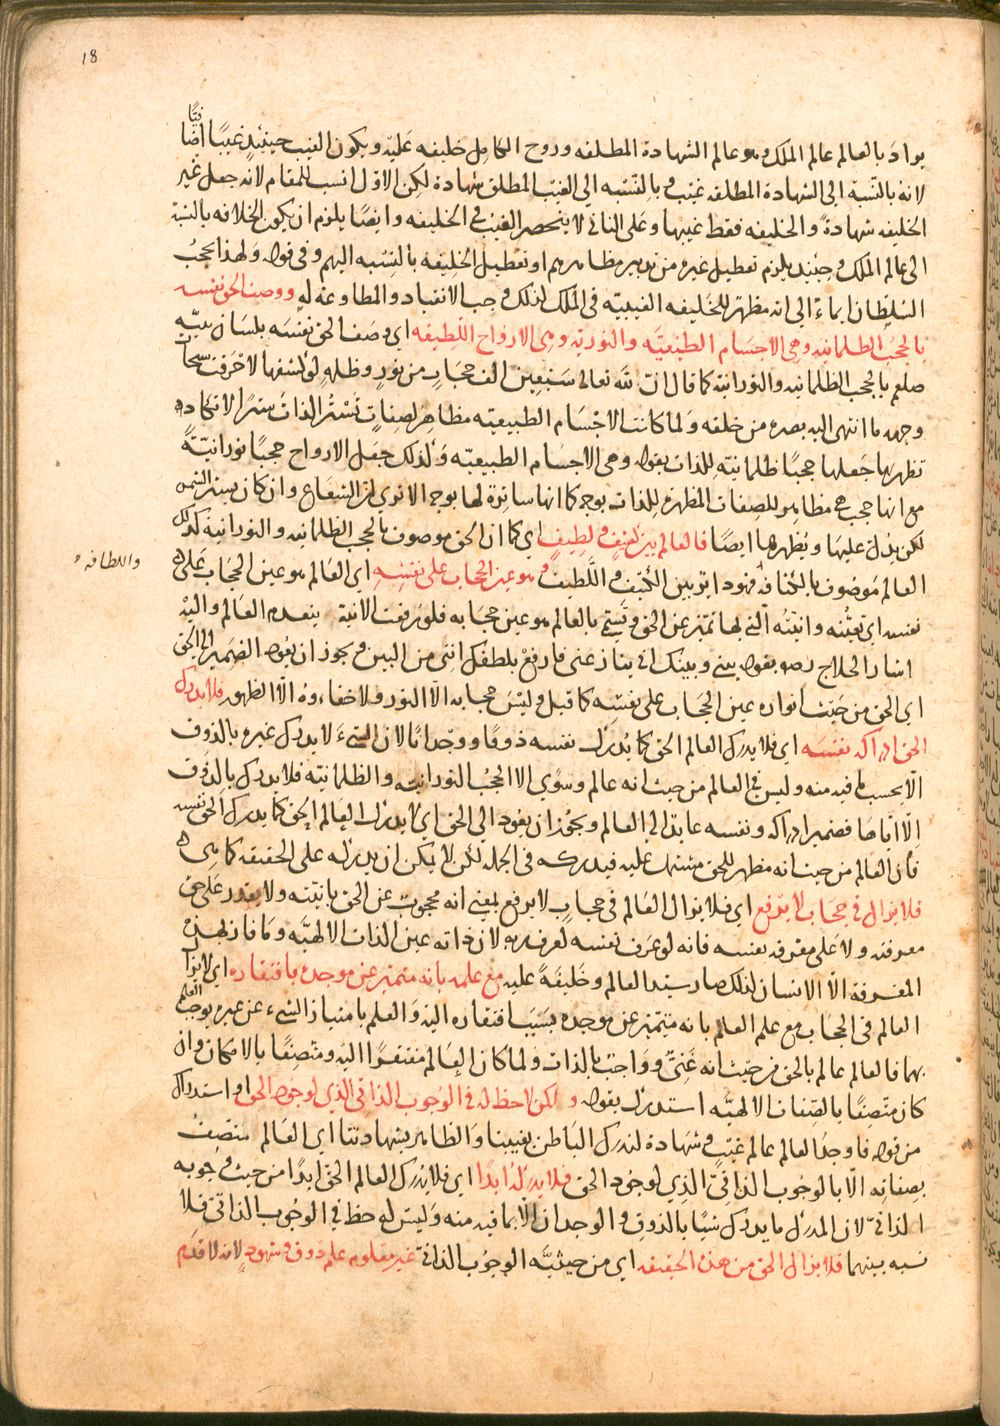 18
يراد بالعالم عالم الملك وهو عالم الشهادة المطلقه وروح الكامل خليفه عليه ويكون الغيب حينئذٍ غيبًا اضافيًا
لانه بالنسبة الى الشهادة المطلقه غيب وبالنسبه الى الغيب المطلق شهادة لكن الاول انسب للمقام لانه جعل غير
الخليفه شهادةً والخليفه فقط غيبها وعلى الثاني لا ينحصر الغيب في الخليفه وايضًا يلزم ان يكون الخلافه بالنسبة
الى عالم الملك وحينئذ يلزم تعطيل غيره من تدبير مظاهرهم او تعطيل الخليفه بالنسبه اليهم وفي قوله ولهذا يحجبُ
السلطان ايماءً الى انه مظهر للخليفه الغيبيه في الملك لذلك وجب الانقياد والمطاوعه له ووصف الحق نفسه
بالحجب الظلمانيه وهى الاجسام الطبيعيّه والنوريّه وهى الارواح اللطيفه اى وصف الحق نفسَه بلسان نبيّه
صلعم بالحجب الظلمانيه والنورانيّه كما قال انّ لله تعالى سبعين الف حجابٍ من نورٍ وظلمةٍ لو كشفها لاحرقت سبحات
وجهه ما انتهى اليه بصره من خلقه ولما كانت الاجسام الطبيعيه مظاهر لصفاتٍ تسترُ الذاتَ سترًا لا تكاد
تظهر بها جعلها حجبًا ظلمانيّه للذات بقوله وهى الاجسام الطبيعيّه ولذلك جعل الارواح حجبًا نورانيّةً
مع انها حجب هى مظاهر للصفات المظهرة للذات بوجه كما انها ساترة لها بوجه الا ترى انّ الشعاع وان كان يستر الشمس
لكن يدل عليها ويظهرها ايضًا فالعالم بين كثيف ولطيف اى كما ان الحق موصوف بالحجب الظلمانيه والنورانيه كذلك
العالم موصوف بالكثافه فهو دائر بين الكثيف واللطيف وهو عين الحجاب على نفسه اى العالم هو عين الحجاب على
واللطافه
نفسه اى تعيّنه وانيّته التى بها تميّز عن الحق وتسمّى بالعالم هو عين حجابه فلو رفعت الانيّة ينعدم العالم واليه
اشار الحلاج رضه بقوله بينى وبينك انى ينازعنى فارفع بلطفك انى من البين ويجوز ان يعود الضمير الى الحق
اى الحق من حيث انواره عين الحجاب على نفسه كما قيل وليس حجابه الّا النور ولا خفاءوه الّا الظهور فلا يدرك
الحق ادراكه نفسَه اى فلا يدرك العالم الحق كما يُدرك نفسه ذوقًا ووجدانًا لان الشىءَ لا يدرك غيره بالذوق
الّا بحسب ما فيه منه وليس فى العالم من حيث انه عالم وسوى الا الحجب النورانيه والظلمانيّه فلا يدرك بالذوق
الّا اياها فضمير ادراكه ونفسه عايد الى العالم ويجوز ان يعود الى الحق اى لا يدرك العالم الحق كما يدرك الحق نفسه
فان العالم من حيث انه مظهر للحق مشتمل عليه فيدركه فى الجمله لكن لا يمكن ان يدركه على الحقيقه كما هى
فلا يزال فى حجاب لا يرفع اى فلا يزال العالم فى حجابٍ لا يرفع بمعنى انه محجوب عن الحق بانيّته ولا يقدر على حق
معرفته ولا على معرفه نفسه فانه لو عرف نفسه لعرف ربه لان ذاته عين الذات الالهيّه وما فاز بهذه
المعرفة الّا الانسان لذلك صار سيد العالم وخليفةً عليه مع علمه بانه متميّز عن موجده بافتقاره اى لا يزال
العالم فى الحجاب مع علم العالم بانه متميّز عن موجده بسبب افتقاره اليه والعلم بامتياز الشىء عن غيره يوجب العلم
بهما فالعالم عالم بالحق من حيث انه غنىّ وواجب بالذات ولما كان العالم مفتقرًا اليه ومتصفًا بالامكان وان
كان متصفًا بالصفات الالهيّه استدرك بقوله ولكن لا حظ له فى الوجوب الذاتى الذى لوجود الحق او استدراك
من قوله فاوجد العالم عالم غيبٍ وشهادة لندرك الباطن بغيبنا والظاهر بشهادتنا اى العالم متصف
بصفاته الّا بالوجوب الذاتىّ الذى لوجود الحق فلا يدركه ابدًا اى فلا يدرك العالم الحق ابدًا من حيث وجوبه
الذاتىّ لان المدرك ما يدرك شيًا بالذوق والوجدان الّا بما فيه منه وليس له حظ فى الوجوب الذاتى فلا
نسبه بينهما فلا يزال الحق من هذه الحقيقه اى من حيثيّه الوجوب الذاتىّ غير معلوم علم ذوق وشهودٍ لانه لا قدم